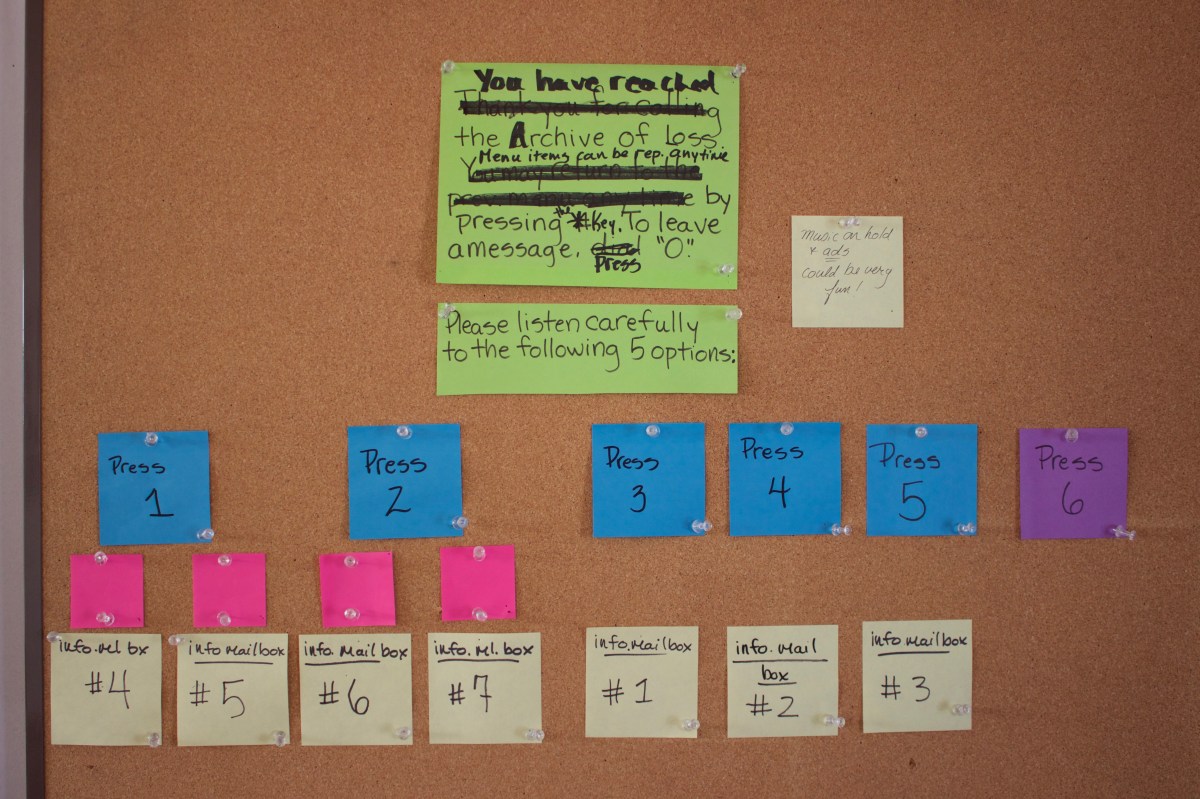 You have reached
Thank you for calling
the Archive of Loss.
Menu items can be rep. anytime
You may return to the
prev. menu anytime by
pressing the * Key. To leave
a message, dial "0."
Press
music on hold
+ ads
could be very
fun!
Please listen carefully
to the following 5 options:
Press
1
Press
2
Press
3
Press
4
Press
5
Press
6
info. ml bx
#4
info mailbox
#5
info. mail box
#6
info. ml. box
#7
info. mailbox
#1
info. mail
box
#2
info mailbox
#3